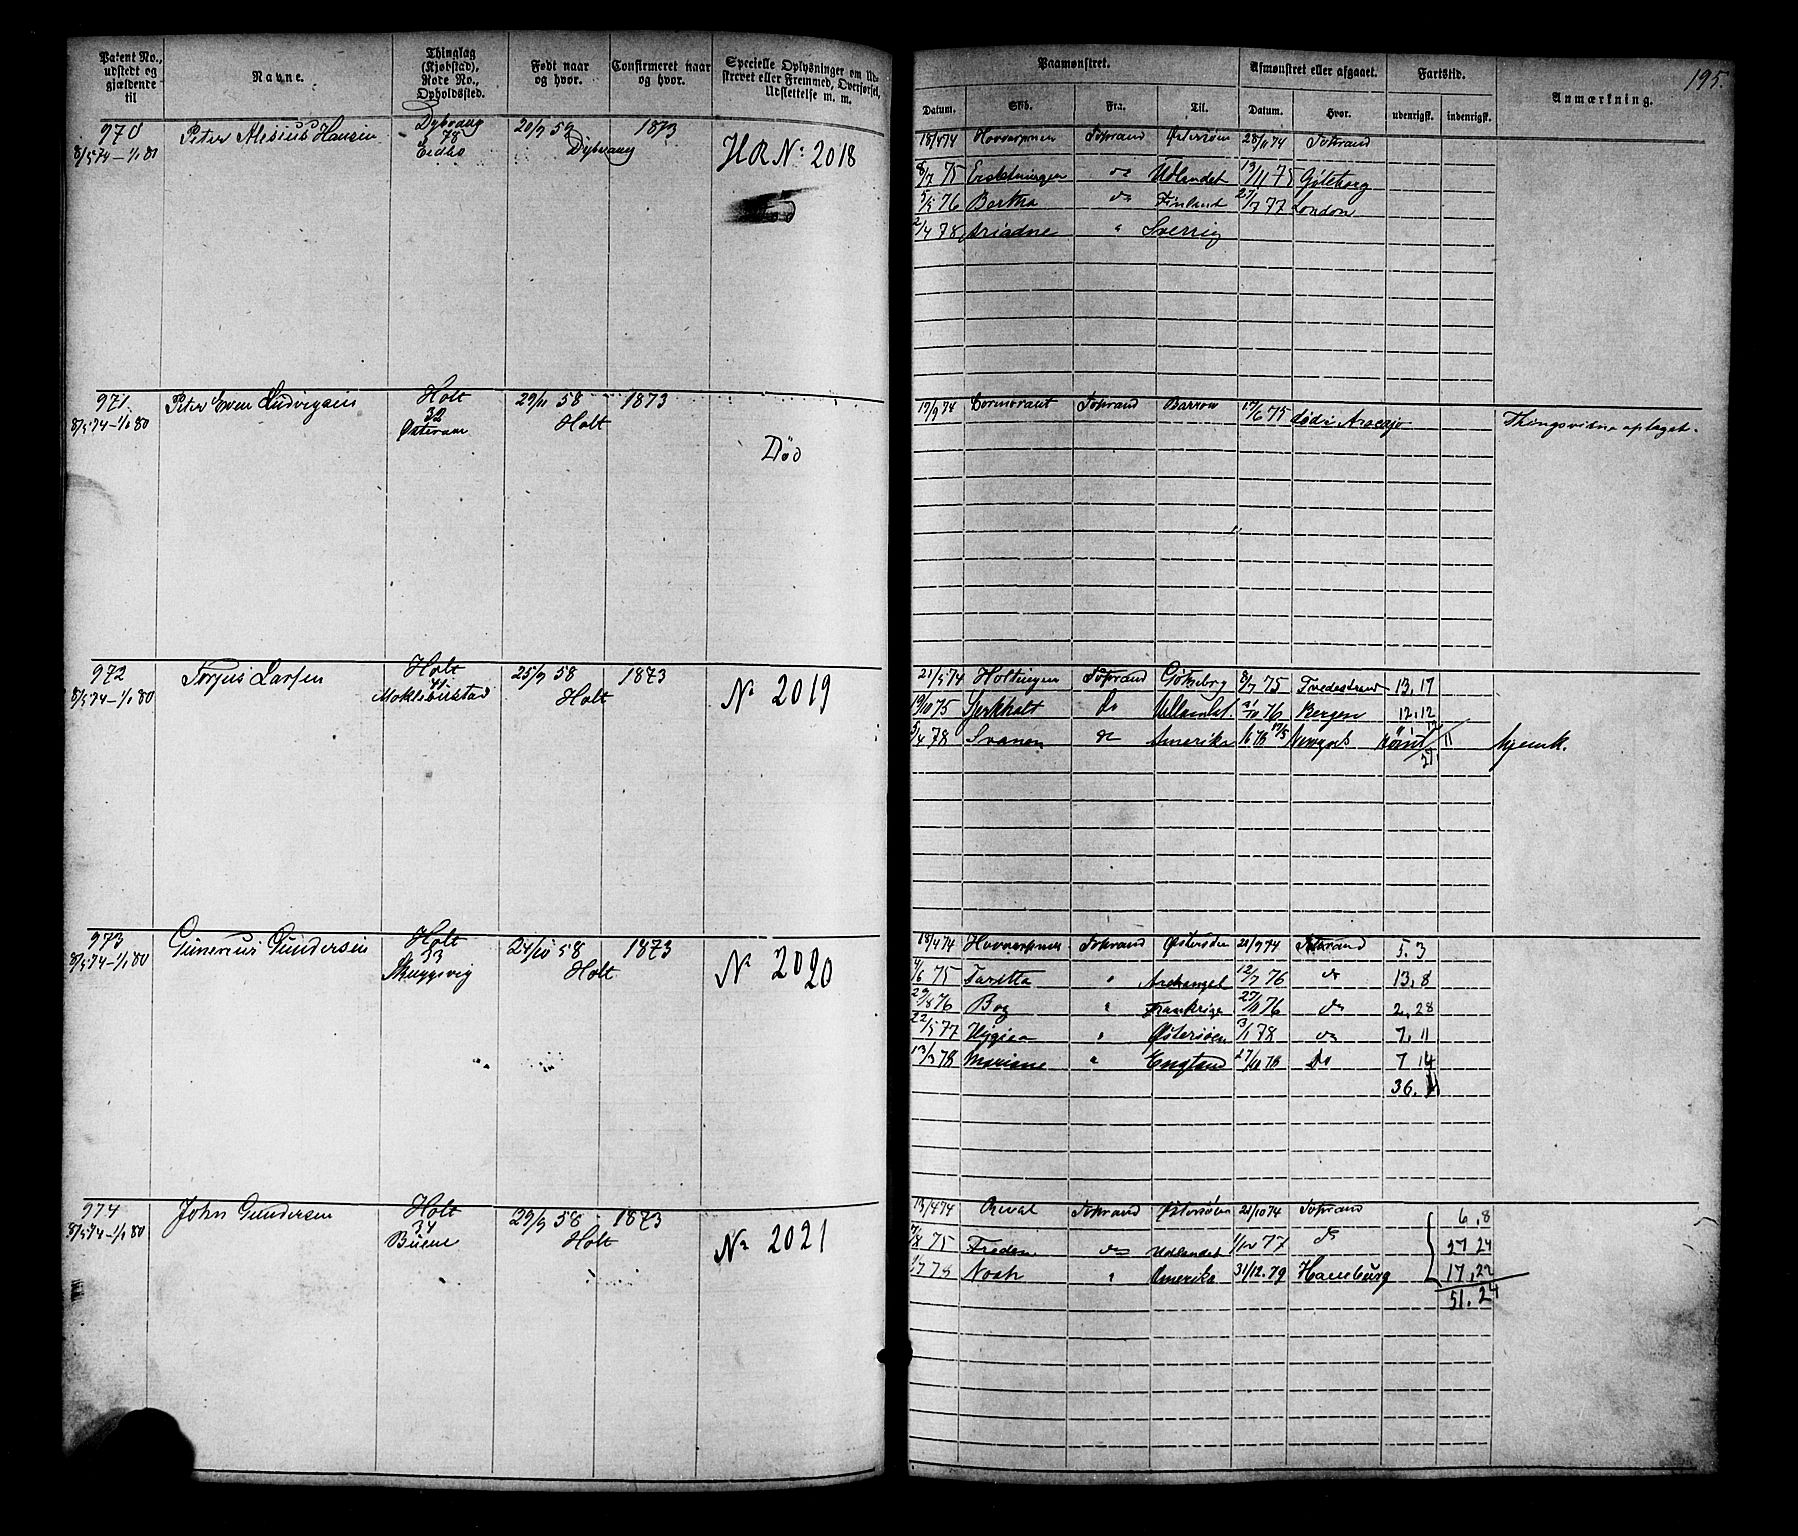 195.
Patent No., udstedt og gjældende til
Navne.
Thinglag (Kjøbstad), Rode No., Opholdssted.
Født naar og hvor.
Confirmeret naar og hvor.
Specielle Oplysninger om Udskrevet eller Fremmed, Overførsel, Udslettelse m. m.
Paamønstret.
Datum. Skib. Fra. Til.
Afmønstret eller afgaaet.
Datum. Hvor.
Fartstid.
udenrigsk. indenrigsk.
Anmærkning.
970
8/5 74 - 1/1 80
Peter Hansen
Dybvaag
78
Eidbo
20/9 59
Dybvaag
1873
HR No: 2018
18/4 74 Tvstrand Østersøen 28/11 74 Tvstrand
8/7 75 do Udlandet 19/11 75 Gøteborg
5/5 76 Bertha do Finland 27/7 77 London
2/4 78 Ariadne " Sverrig
971
8/5 74 - 1/1 80
Peter Even Ludvigsen
Holt
32
Østeraa
29/11 58
Holt
1873
Død
17/9 74 Cormorant Tvstrand Barrow 17/6 75 død i Aracajo Thingsvidne optaget.
972
8/5 74 - 1/1 80
Torjus Larsen
Holt
41
25/9 58
Holt
1873
No 2019
21/5 74 Holtingen Tvstrand Gøteborg 8/7 75 Tvedestrand 13, 17
19/10 75 do Udlandet. 76 Bergen 12, 12
5/4 78 Svanen do Amerika Newyork rømt 11 hjemk.
973
8/5 74 - 1/1 80
Gunerius Gundersen
Holt
53
Skuggevig
24/10 58
Holt
1873
No 2020
18/4 74 Tvstrand Østersøen 21/9 74 Tvstrand 5. 3
4/6 75 " Archangel 12/7 76 do 13, 8
29/8 76 Bog " Frankrige 27/11 76 do 2, 28
22/5 77 Hygiea " Østersøen 3/1 78 do 7, 11
13/3 78 Mariane " England 27/10 78 Do 7 14
36.
974
8/5 74 - 1/1 80
John Gundersen
Holt
34
Buene
29/9 58
Holt
1873
No 2021
13/4 74 Reval Tvstrand Østersøen 21/10 74 Tvstrand 6, 8
7/8 75 Freden do Udlandet 1/12 77 do 27 24
78 Noah " Amerika 31/12. 79 Hamburg 17, 22
51. 24